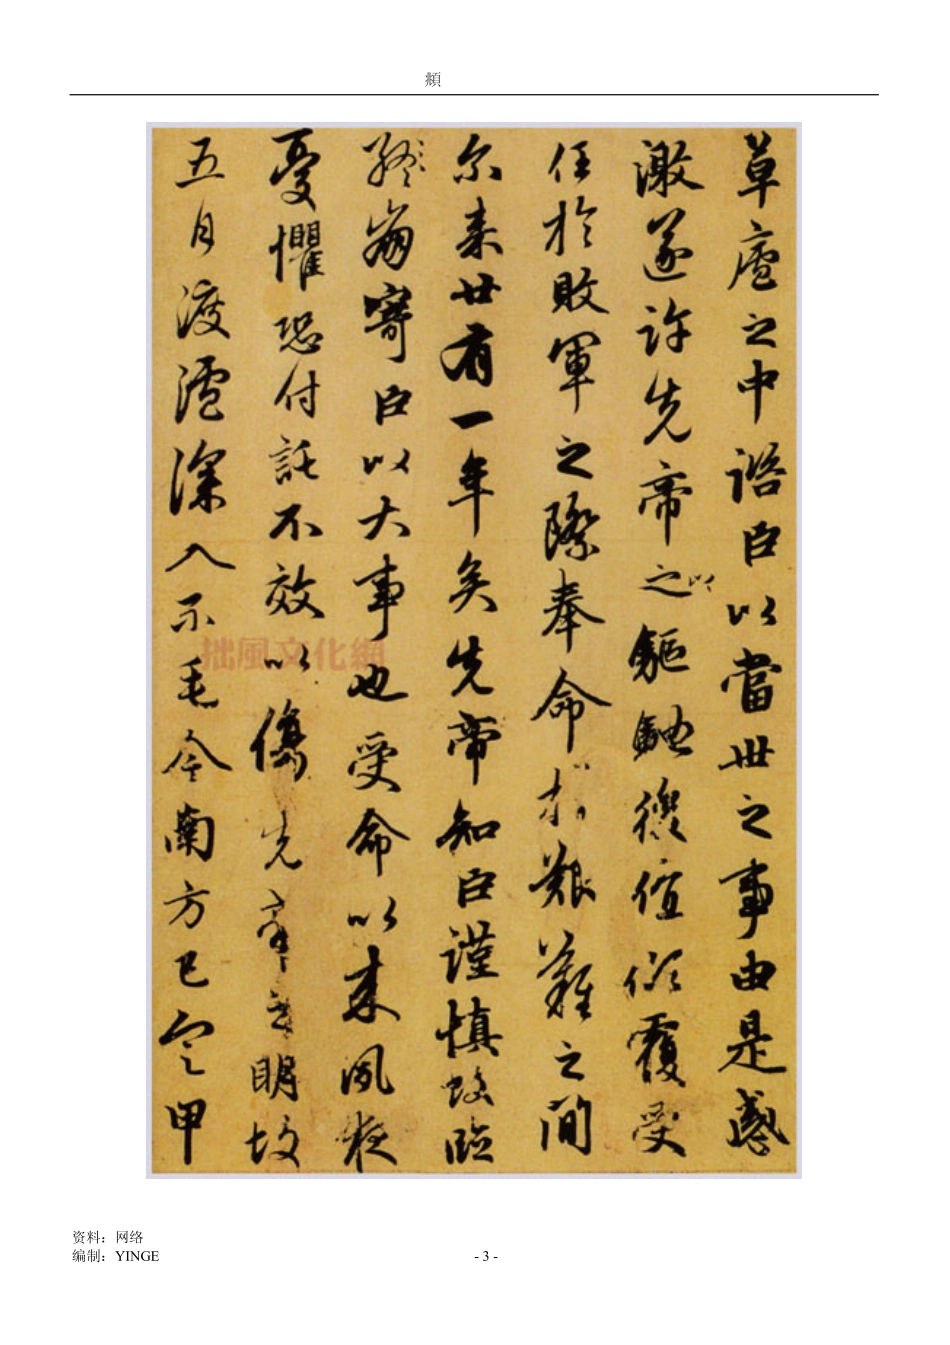 頫
草廬之中諮臣以當世之事由是感
激遂許先帝之以驅馳後值傾覆受
任於敗軍之際奉命於艱難之間
尔来廿有一年矣先帝知臣謹慎故臨
終崩寄臣以大事也受命以来夙夜
憂懼恐付託不效以傷先帝之明故
五月渡瀘深入不毛今南方已定甲
拙風文化網
资料：网络
编制：YINGE
- 3 -